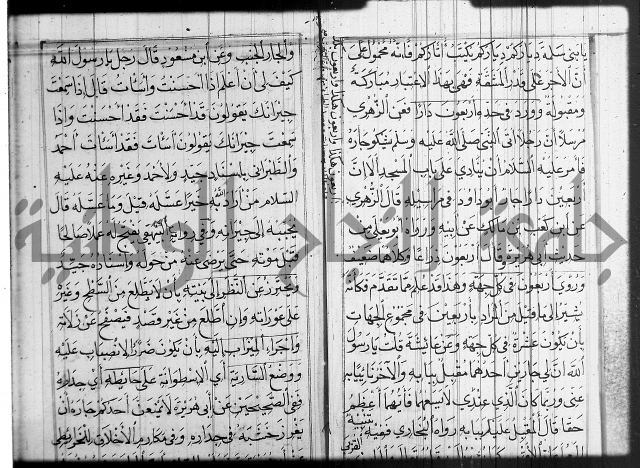 يا بني سلمة دياركم دياركم تكتب آثاركم فانه محمول على
ان الاجر على قدر المشقة فهي بهذا الاعتبار مباركة
ومقبولة وورد في حد اربعون دارا فعن الزهري
مرسلا ان رجلا اتى النبي صلى الله عليه وسلم يشكو جاره
فامر عليه السلام ان ينادي على باب المسجد الا ان
اربعين دارا جار ابو داود في مراسيله قال الزهري
عن ابن كعب بن مالك عن ابيه ورواه ابو يعلى من
حديث ابي هريرة وقال اربعون ذراعا وكلاهما ضعيف
وروي اربعون في كل جهة وهذا قد علم مما تقدم فكانه
يشير الى ما قيل من المراد باربعين في مجموع الجهات
بان يكون عشرة في كل جهة وعن عائشة قلت يا رسول
الله ان لي جارين احدهما مقبل ببابه والاخر ناء ببابه
عني وربما كان الذي عندي لا يسعهما فايهما اعظم
حقا قال المقبل عليك ببابه رواه البخاري
والجار الجنب وعن ابن مسعود قال رجل يا رسول الله
كيف لي ان اعلم اذا احسنت واسأت قال اذا سمعت
جيرانك يقولون قد احسنت فقد احسنت واذا
سمعت جيرانك يقولون اسأت فقد اسأت احمد
والطبراني باسناد جيد ولاحمد وغيره عنه عليه
السلام من اراد الله به خيرا عسله قيل وما عسله قال
يحببه الى جيرانه وفي رواية البيهقي يفتح له عملا صالحا
قبل موته حتى يرضى عنه من حوله واسناده جيد
ويحترز عن النظر الى بيته بان لا يطلع من السطح وغيره
على عوراته وان اطلع من غير قصد فيصفح عن زلاته
واجراء الميزاب اليه بان يكون ضرر الانصباب عليه
ووضع السارية اي الاسطوانة على حائطه اي جداره
ففي الصحيحين عن ابي هريرة لا يمنعن احدكم جاره ان
يغرز خشبة في جداره وفي مكارم الاخلاق للخرائطي